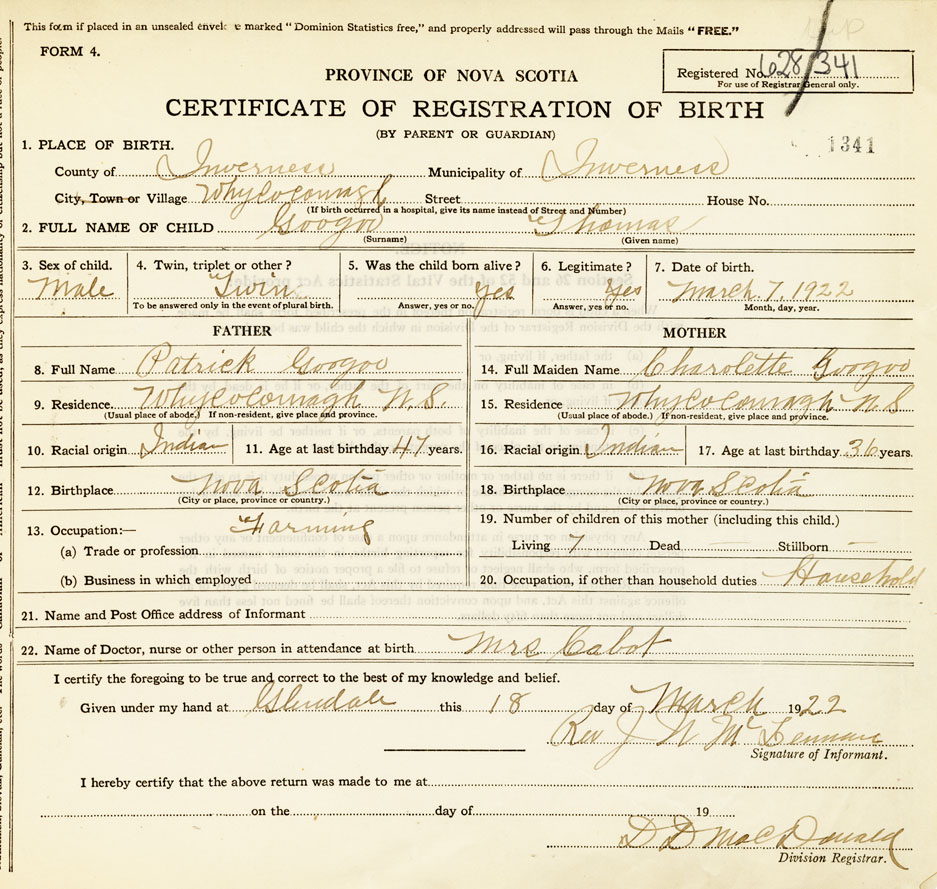 This form if placed in an unsealed envelope marked "Dominion Statistics free," and properly addressed will pass through the Mails "FREE."
FORM 4.
PROVINCE OF NOVA SCOTIA
Registered No. 628/341
For use of Registrar General only.
CERTIFICATE OF REGISTRATION OF BIRTH
(BY PARENT OR GUARDIAN)
1341
1. PLACE OF BIRTH.
County of Inverness Municipality of Inverness
City, Town or Village Whycocomagh Street House No.
(If birth occurred in a hospital, give its name instead of Street and Number)
2. FULL NAME OF CHILD Googoo Thomas
(Surname) (Given name)
3. Sex of child. 4. Twin, triplet or other? 5. Was the child born alive? 6. Legitimate? 7. Date of birth.
Male Twin Yes Yes March 7, 1922
To be answered only in the event of plural birth. Answer, yes or no. Answer, yes or no. Month, day, year.
FATHER MOTHER
8. Full Name Patrick Googoo 14. Full Maiden Name Charolette Googoo
9. Residence Whycocomagh N.S. 15. Residence Whycocomagh N S
(Usual place of abode) If non-resident, give place and province. (Usual place of abode) If non-resident, give place and province.
10. Racial origin Indian 11. Age at last birthday 47 years. 16. Racial origin Indian 17. Age at last birthday 36 years.
12. Birthplace Nova Scotia 18. Birthplace Nova Scotia
(City or place, province or country.) (City or place, province or country.)
13. Occupation:— Farming 19. Number of children of this mother (including this child.)
(a) Trade or profession Living 7 Dead — Stillborn —
(b) Business in which employed 20. Occupation, if other than household duties Household
21. Name and Post Office address of Informant
22. Name of Doctor, nurse or other person in attendance at birth Mrs Cabot
I certify the foregoing to be true and correct to the best of my knowledge and belief.
Given under my hand at Glendale this 18 day of March 1922
Rev J N McLennan
Signature of Informant.
I hereby certify that the above return was made to me at
on the day of 19
D D MacDonald
Division Registrar.